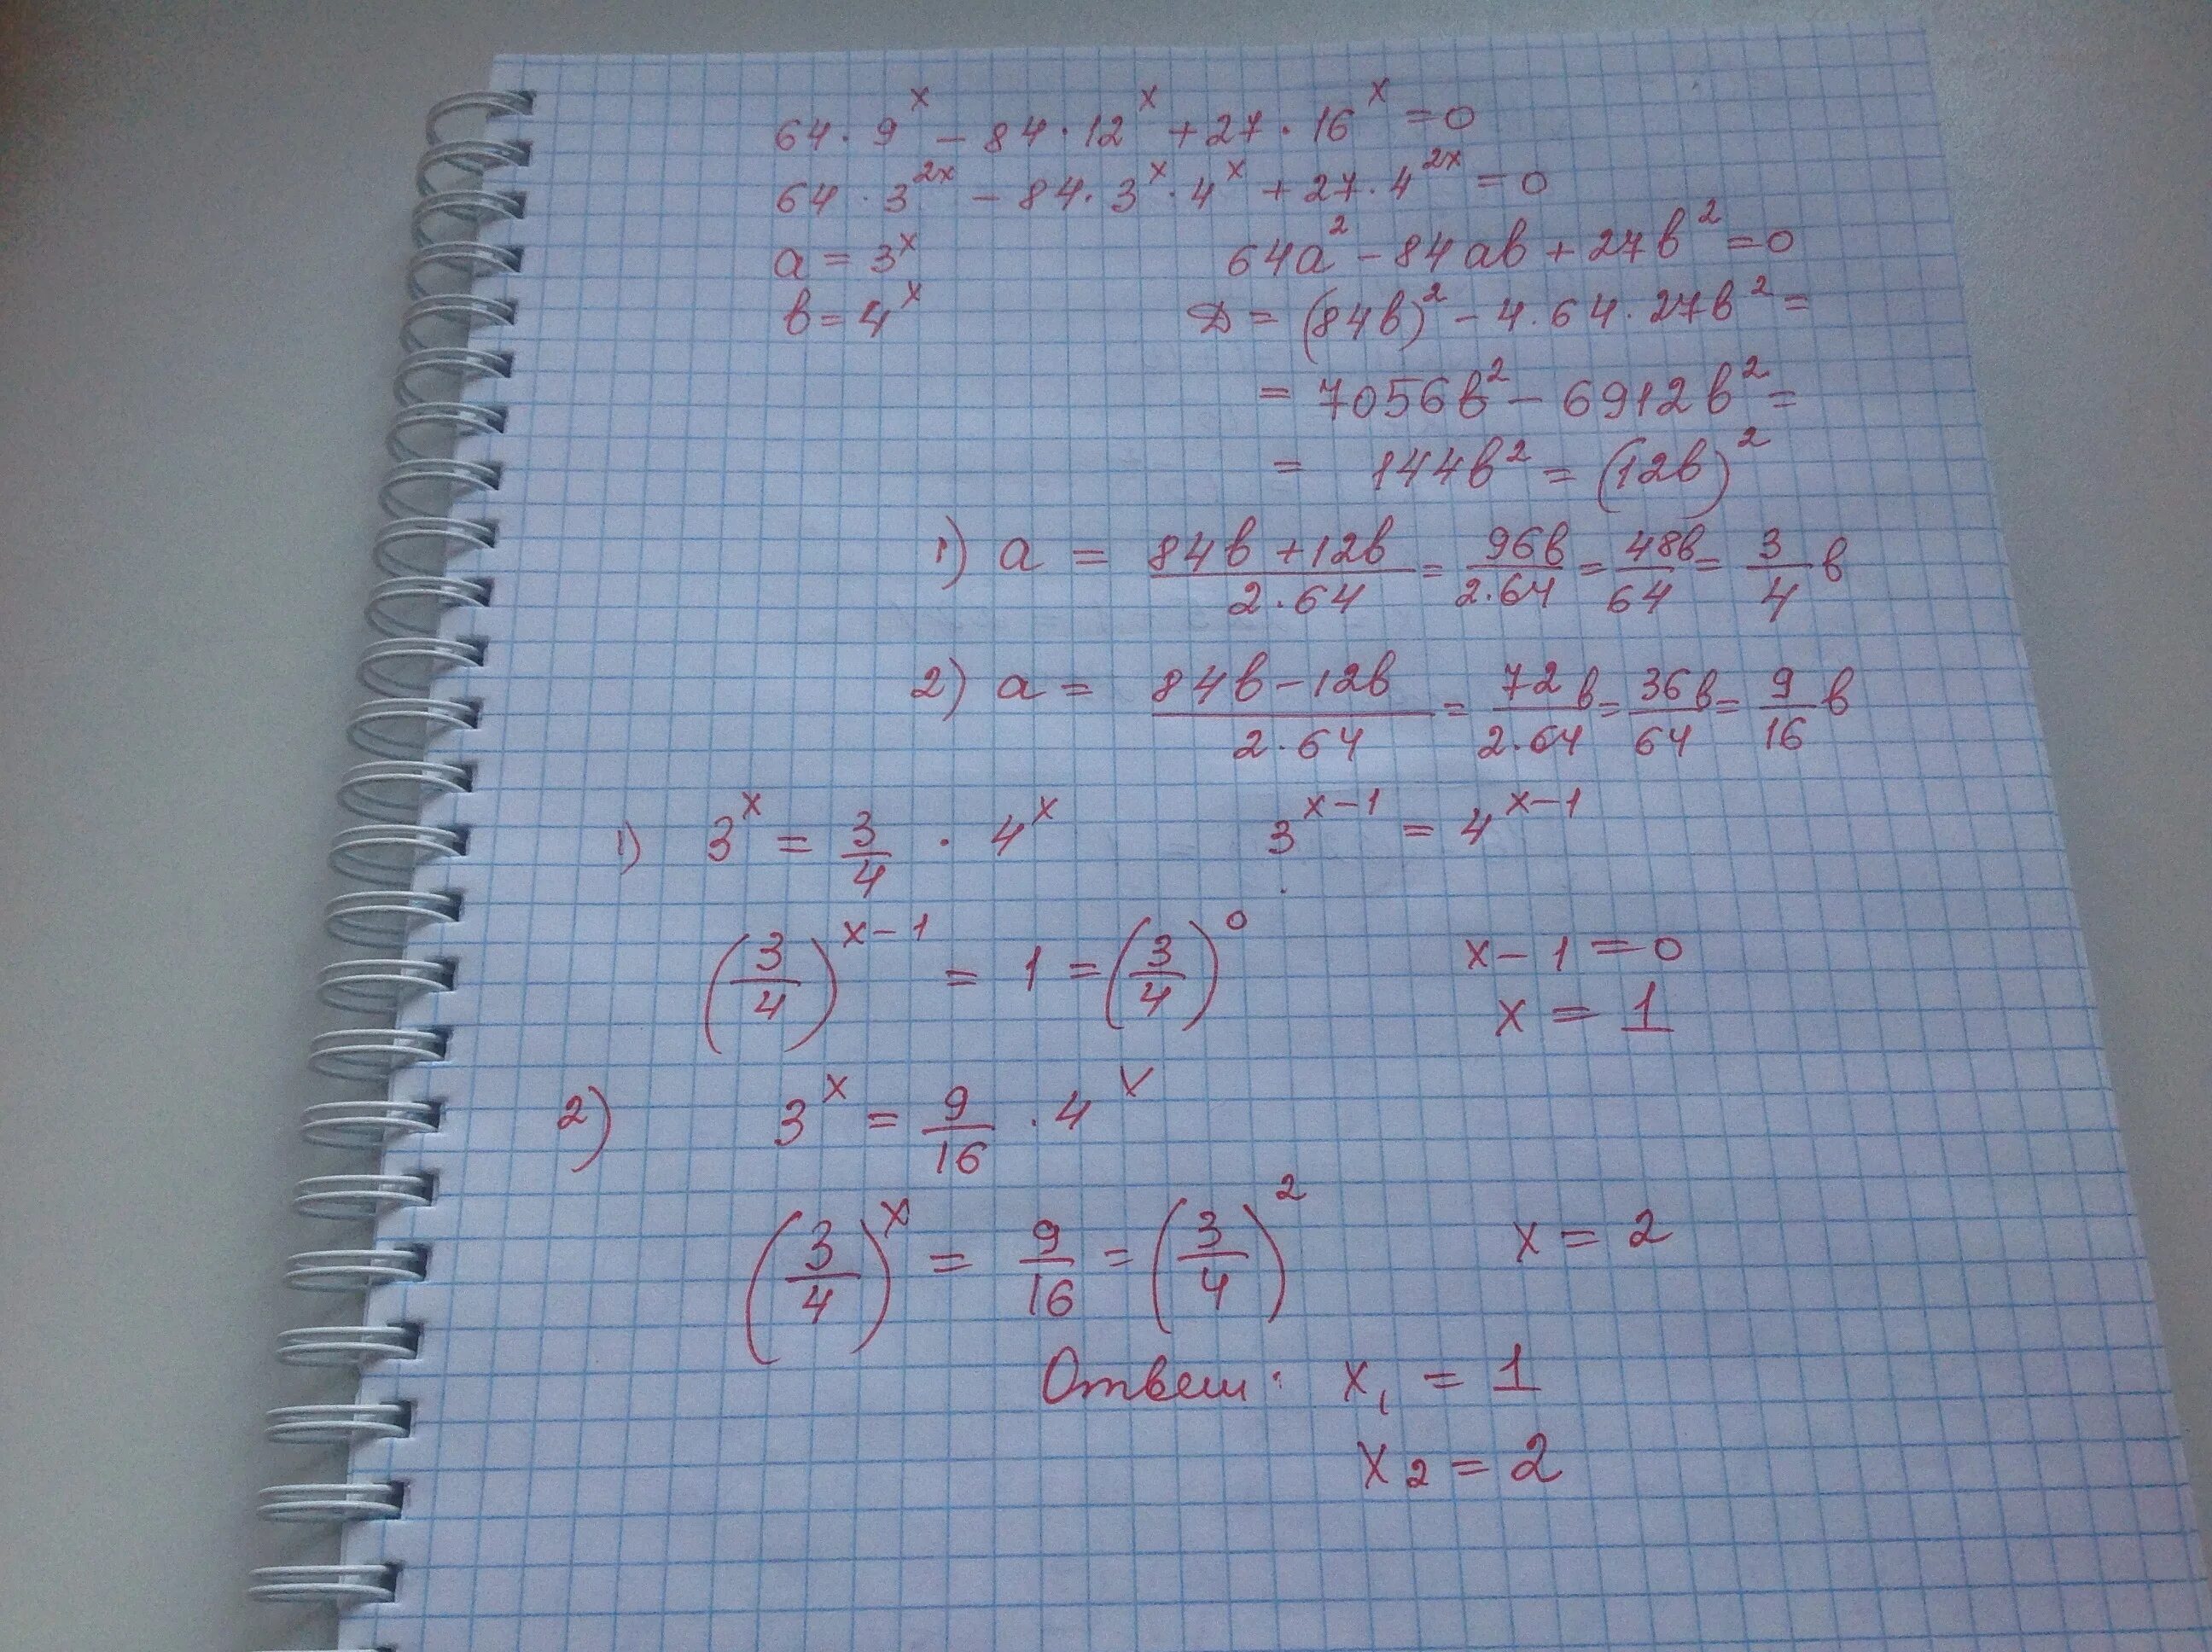 64 · 9^x − 84 · 12^x + 27 · 16^x = 0
64 · 3^{2x} − 84 · 3^x · 4^x + 27 · 4^{2x} = 0
a = 3^x    64a² − 84ab + 27b² = 0
b = 4^x    D = (84b)² − 4 · 64 · 27b² =
= 7056b² − 6912b² =
= 144b² = (12b)²
1) a = (84b + 12b)/(2 · 64) = 96b/(2 · 64) = 48b/64 = 3/4 b
2) a = (84b − 12b)/(2 · 64) = 72b/(2 · 64) = 36b/64 = 9/16 b
1) 3^x = 3/4 · 4^x    3^{x−1} = 4^{x−1}
(3/4)^{x−1} = 1 = (3/4)^0    x − 1 = 0
x = 1
2) 3^x = 9/16 · 4^x
(3/4)^x = 9/16 = (3/4)²    x = 2
Ответ: x₁ = 1
x₂ = 2